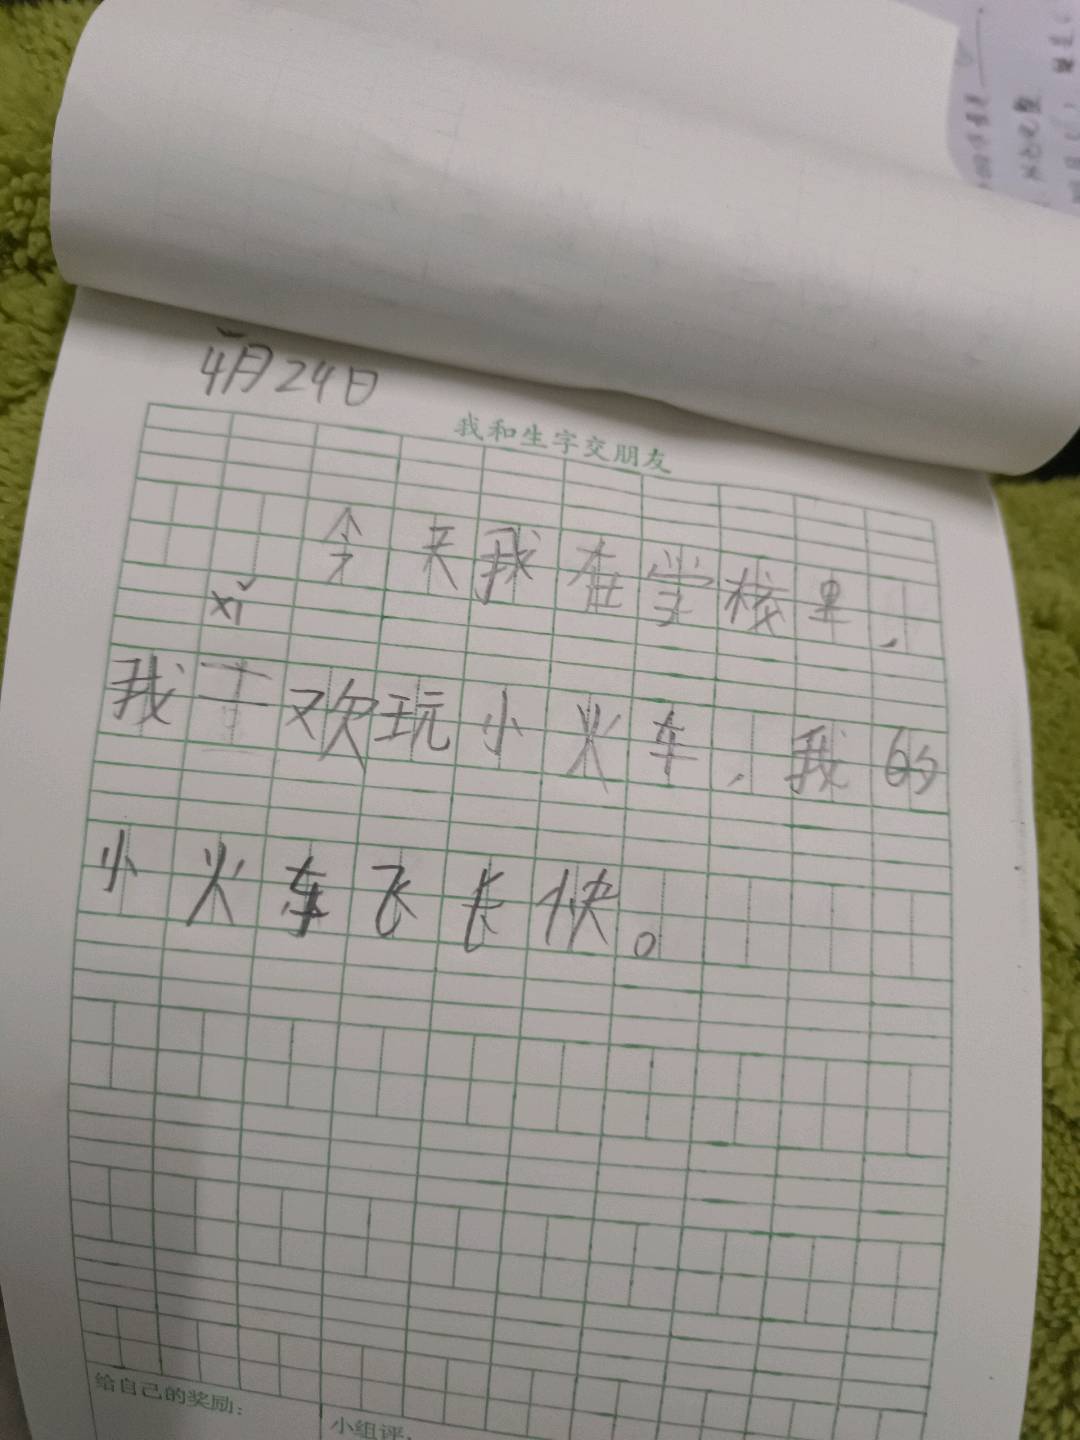 4月24日
我和生字交朋友
今天我在学校里,
xǐ
我欢玩小火车,我的
小火车飞长快。
给自己的奖励:
小组评: